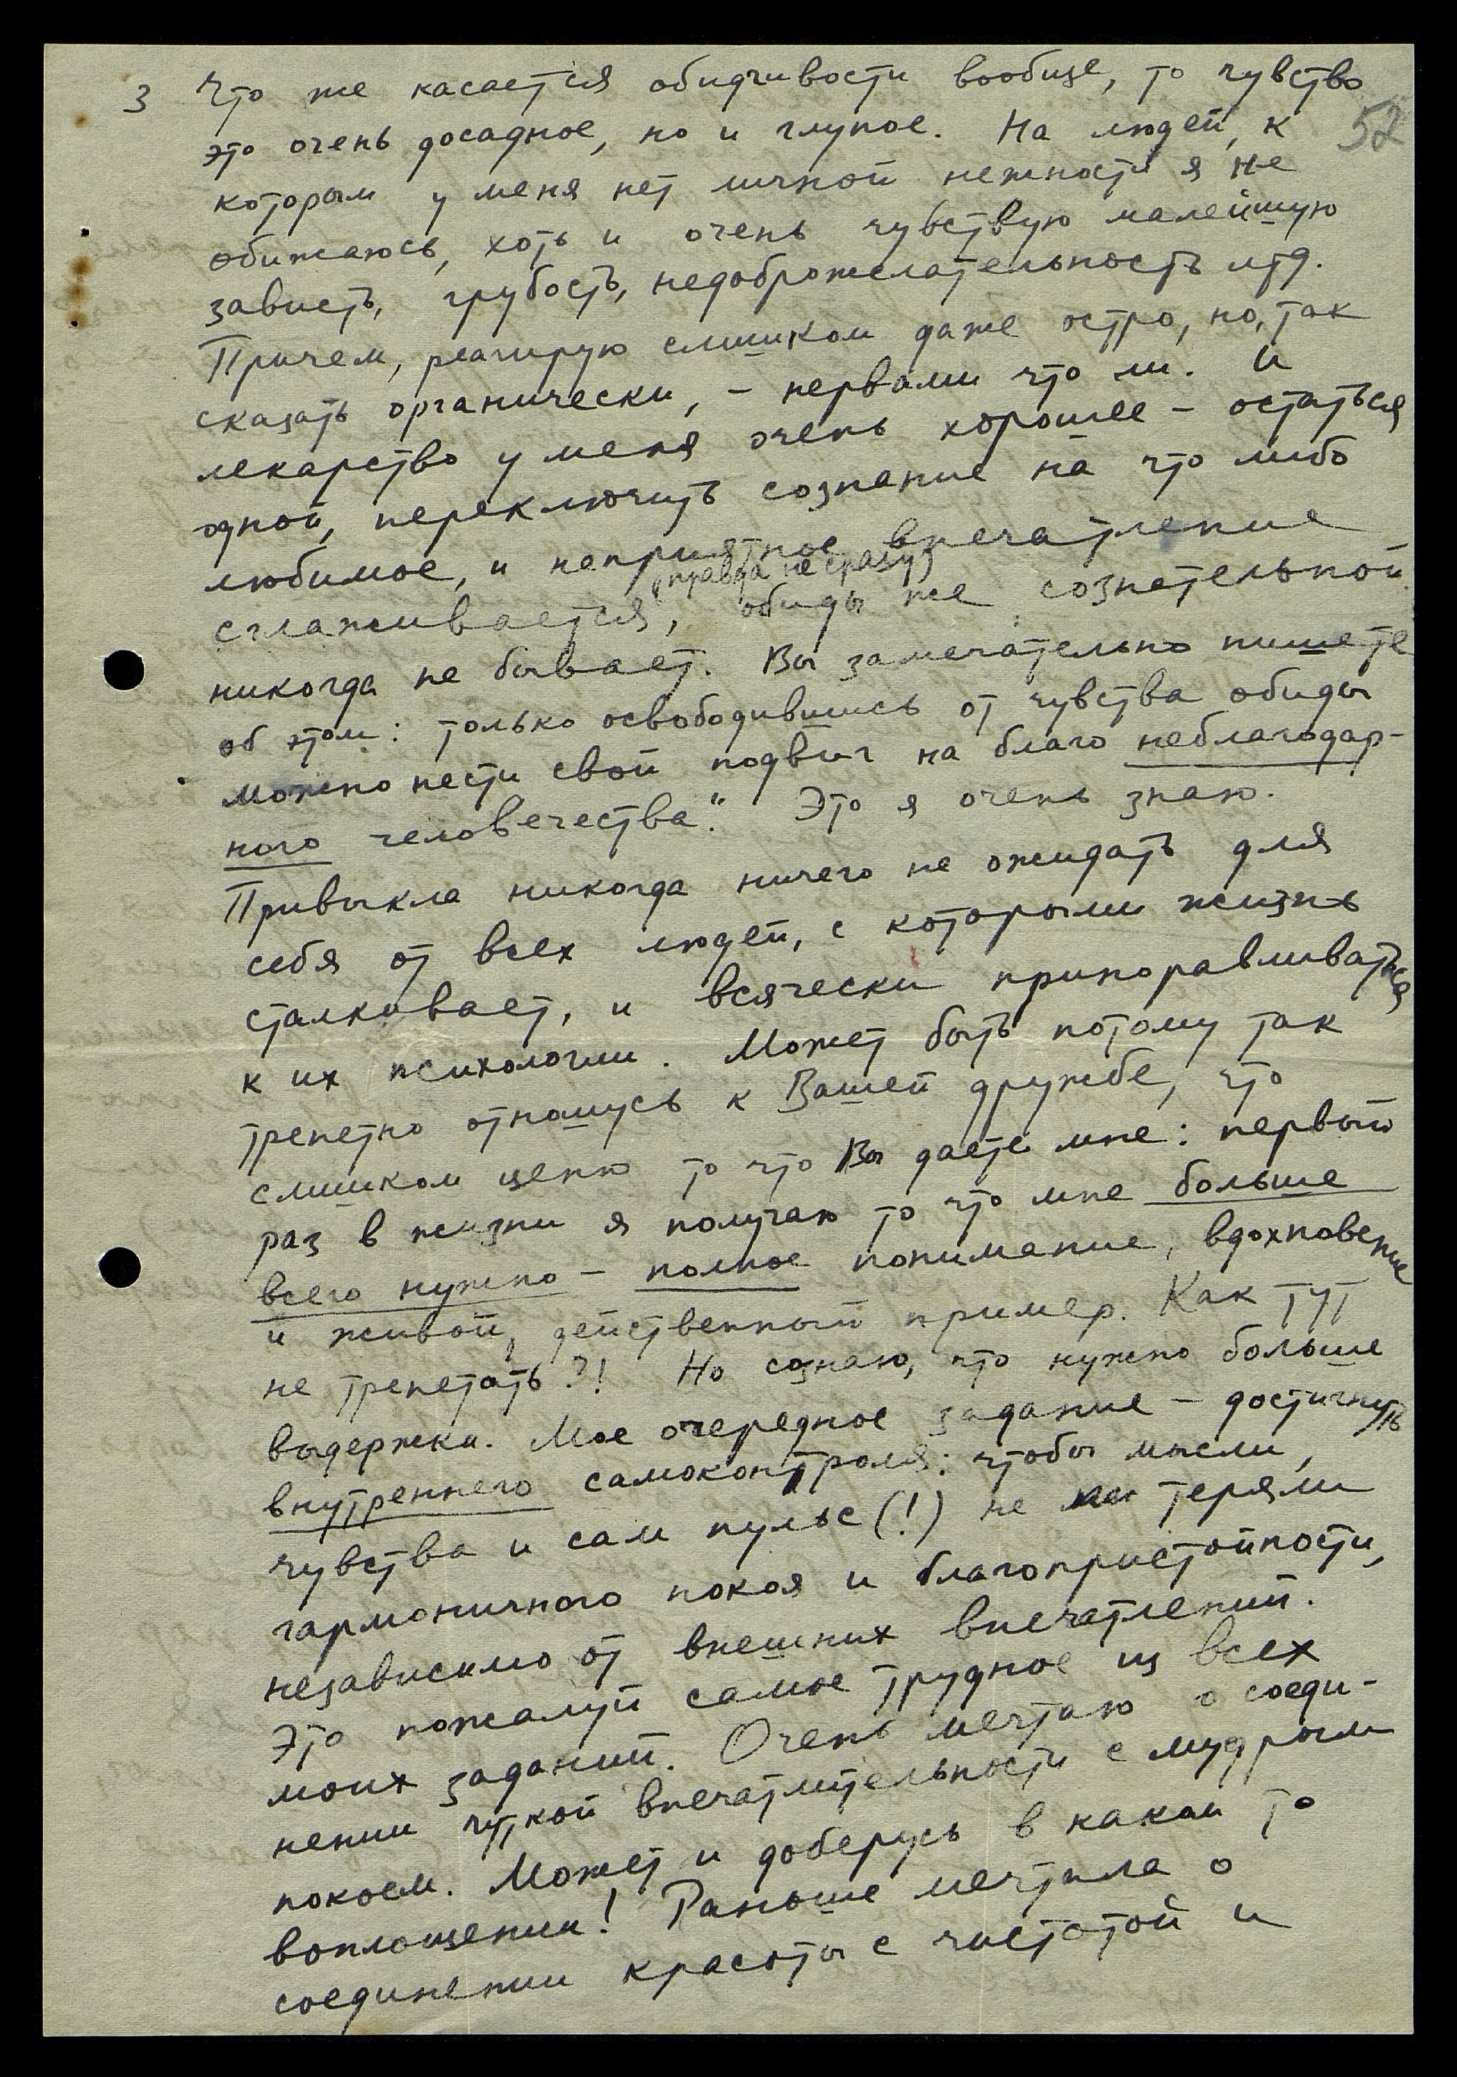 3 Что же касается обидчивости вообще, то чувство
52
это очень досадное, но и глупое. На людей, к
которым у меня нет личной нежности я не
обижаюсь, хоть и очень чувствую малейшую
зависть, грубость, недоброжелательность итд.
Причем, реагирую слишком даже остро, но, так
сказать органически, – нервами что ли. И
лекарство у меня очень хорошее – остаться
одной, переключить сознание на что либо
любимое, и неприятное впечатление
(правда не сразу)
сглаживается, обиды же сознательной
никогда не бывает. Вы замечательно пишете
об этом: только освободившись от чувства обиды
можно нести свой подвиг на благо неблагодар-
ного человечества." Это я очень знаю.
Привыкла никогда ничего не ожидать для
себя от всех людей, с которыми жизнь
сталкивает, и всячески приноравливаться
к их психологии. Может быть потому так
трепетно отношусь к Вашей дружбе, что
слишком ценю то что Вы даете мне: первый
раз в жизни я получаю то что мне больше
всего нужно – полное понимание, вдохновение
и живой, действенный пример. Как тут
не трепетать?! Но сознаю, что нужно больше
выдержки. Мое очередное задание – достигнуть
внутреннего самоконтроля: чтобы мысли,
чувства и сам пульс (!) не теряли
гармоничного покоя и благопристойности,
независимо от внешних впечатлений.
Это пожалуй самое трудное из всех
моих заданий. Очень мечтаю о соеди-
нении чуткой впечатлительности с мудрым
покоем. Может и доберусь в каком то
воплощении! Раньше мечтала о
соединении красоты с чистотой и